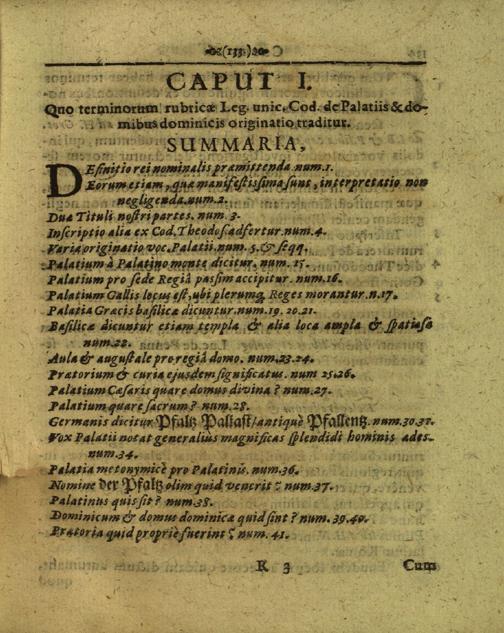 (133.)
CAPUT I.
Quo terminorum rubricæ Leg. unic. Cod. de Palatiis & do-
mibus dominicis originatio traditur.
SUMMARIA,
DEfinitio rei nominalis præmittenda num.1.
Eorum etiam, quæ manifestissima sunt, interpretatio non
negligenda.num.2.
Dua Tituli nostri partes. num. 3.
Inscriptio alia ex Cod. Theodos. adfertur.num.4.
Varia originatio voc. Palatii.num. 5. & seqq.
Palatium à Palatino monte dicitur. num. 15.
Palatium pro sede Regiâ passim accipitur. num.16.
Palatium Gallis locus est, ubi plerumq; Reges morantur. n.17.
Palatia Græcis basilicæ dicuntur num.19. 20.21.
Basilicæ dicuntur etiam templa & alia loca ampla & spatiosa
num.22.
Aula & augustale pro regiâ domo. num.23.24.
Prætorium & curia ejusdem significatus. num 25.26.
Palatium Cæsaris quare domus divina? num.27.
Palatium quare sacrum? num.28.
Germanis dicitur Pfaltz Pallast/antiquè Pfallentz. num.30.32.
Vox Palatii notat generalius magnificas splendidi hominis ades.
num.34.
Palatia metonymicè pro Palatinis. num.36.
Nomine der Pfaltz olim quid venerit? num.37.
Palatinus quis sit? num.38.
Dominicum & domus dominicæ quid sint? num.39.40.
Prætoria quid propriè fuerint? num. 41.
K 3 Cum